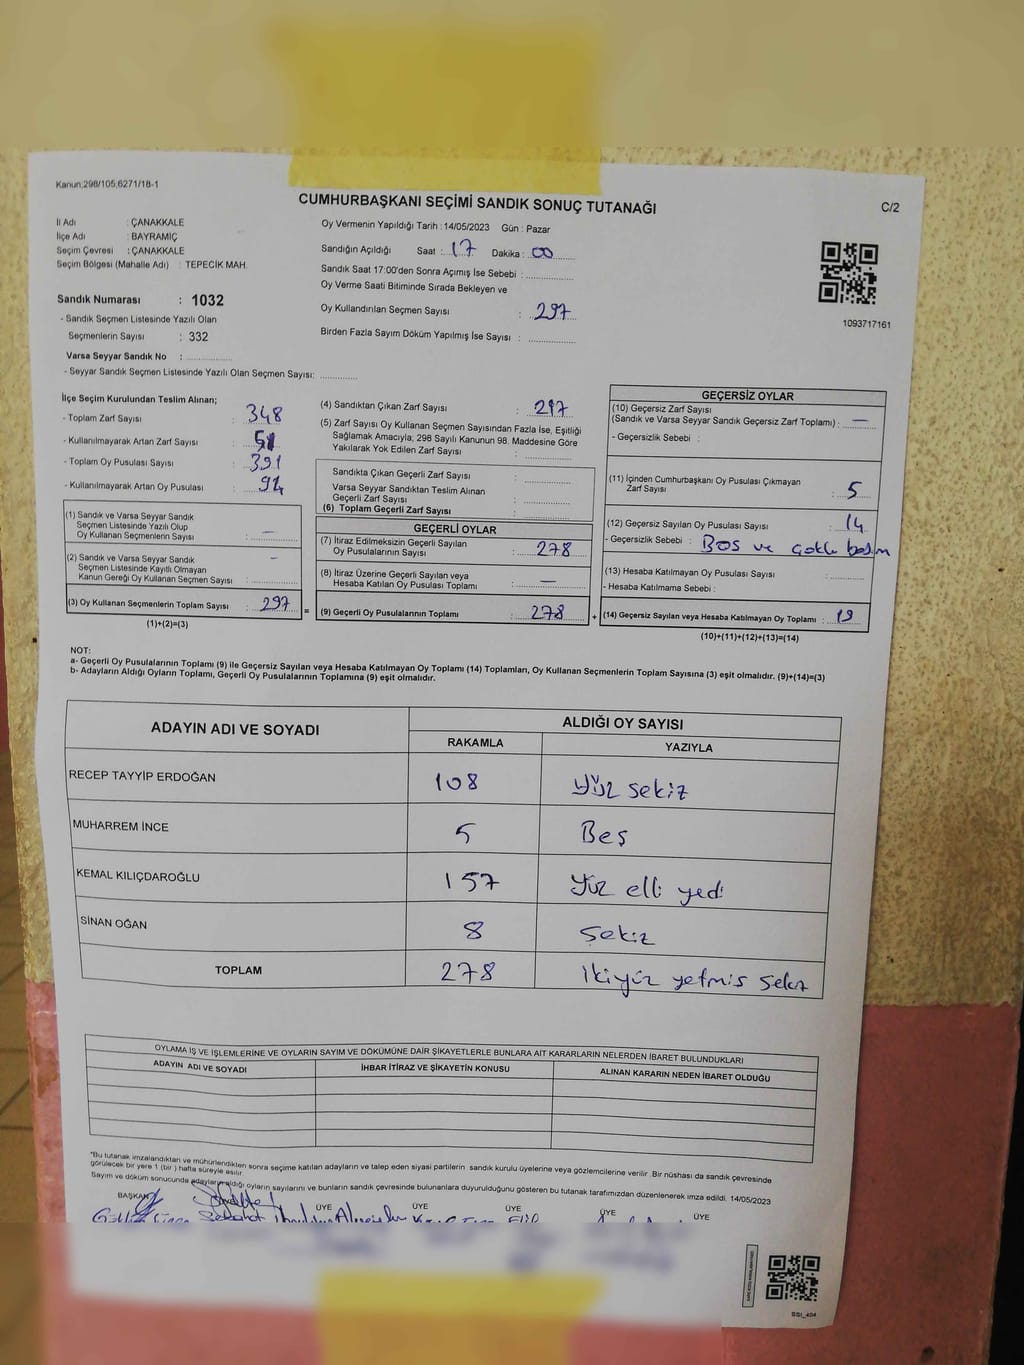 Kanun;298/105;6271/18-1
CUMHURBAŞKANI SEÇİMİ SANDIK SONUÇ TUTANAĞI
C/2
İl Adı : ÇANAKKALE
İlçe Adı : BAYRAMİÇ
Seçim Çevresi : ÇANAKKALE
Seçim Bölgesi (Mahalle Adı) : TEPECİK MAH.
Oy Vermenin Yapıldığı Tarih : 14/05/2023 Gün : Pazar
Sandığın Açıldığı Saat : 17 Dakika : 00
Sandık Saat 17:00'den Sonra Açımış İse Sebebi :
Oy Verme Saati Bitiminde Sırada Bekleyen ve
Oy Kullandırılan Seçmen Sayısı : 297
Birden Fazla Sayım Döküm Yapılmış İse Sayısı :
1093717161
Sandık Numarası : 1032
- Sandık Seçmen Listesinde Yazılı Olan
Seçmenlerin Sayısı : 332
Varsa Seyyar Sandık No :
- Seyyar Sandık Seçmen Listesinde Yazılı Olan Seçmen Sayısı:
İlçe Seçim Kurulundan Teslim Alınan;
- Toplam Zarf Sayısı : 348
- Kullanılmayarak Artan Zarf Sayısı : 51
- Toplam Oy Pusulası Sayısı : 391
- Kullanılmayarak Artan Oy Pusulası : 94
(1) Sandık ve Varsa Seyyar Sandık
Seçmen Listesinde Yazılı Olup
Oy Kullanan Seçmenlerin Sayısı : —
(2) Sandık ve Varsa Seyyar Sandık
Seçmen Listesinde Kayıtlı Olmayan
Kanun Gereği Oy Kullanan Seçmen Sayısı : —
(3) Oy Kullanan Seçmenlerin Toplam Sayısı : 297 =
(1)+(2)=(3)
(4) Sandıktan Çıkan Zarf Sayısı : 297
(5) Zarf Sayısı Oy Kullanan Seçmen Sayısından Fazla İse, Eşitliği
Sağlamak Amacıyla; 298 Sayılı Kanunun 98. Maddesine Göre
Yakılarak Yok Edilen Zarf Sayısı :
Sandıkta Çıkan Geçerli Zarf Sayısı :
Varsa Seyyar Sandıktan Teslim Alınan
Geçerli Zarf Sayısı :
(6) Toplam Geçerli Zarf Sayısı :
GEÇERLİ OYLAR
(7) İtiraz Edilmeksizin Geçerli Sayılan
Oy Pusulalarının Sayısı : 278
(8) İtiraz Üzerine Geçerli Sayılan veya
Hesaba Katılan Oy Pusulası Toplamı : —
(9) Geçerli Oy Pusulalarının Toplamı : 278 +
GEÇERSİZ OYLAR
(10) Geçersiz Zarf Sayısı
(Sandık ve Varsa Seyyar Sandık Geçersiz Zarf Toplamı) : —
- Geçersizlik Sebebi :
(11) İçinden Cumhurbaşkanı Oy Pusulası Çıkmayan
Zarf Sayısı : 5
(12) Geçersiz Sayılan Oy Pusulası Sayısı : 14
- Geçersizlik Sebebi : Boş ve çoklu basım
(13) Hesaba Katılmayan Oy Pusulası Sayısı :
- Hesaba Katılmama Sebebi :
(14) Geçersiz Sayılan veya Hesaba Katılmayan Oy Toplamı : 19
(10)+(11)+(12)+(13)=(14)
NOT:
a- Geçerli Oy Pusulalarının Toplamı (9) ile Geçersiz Sayılan veya Hesaba Katılmayan Oy Toplamı (14) Toplamları, Oy Kullanan Seçmenlerin Toplam Sayısına (3) eşit olmalıdır. (9)+(14)=(3)
b- Adayların Aldığı Oyların Toplamı, Geçerli Oy Pusulalarının Toplamına (9) eşit olmalıdır.
ADAYIN ADI VE SOYADI ALDIĞI OY SAYISI
RAKAMLA YAZIYLA
RECEP TAYYİP ERDOĞAN 108 Yüz sekiz
MUHARREM İNCE 5 Beş
KEMAL KILIÇDAROĞLU 157 Yüz elli yedi
SİNAN OĞAN 8 Sekiz
TOPLAM 278 İkiyüz yetmiş sekiz
OYLAMA İŞ VE İŞLEMLERİNE VE OYLARIN SAYIM VE DÖKÜMÜNE DAİR ŞİKAYETLERLE BUNLARA AİT KARARLARIN NELERDEN İBARET BULUNDUKLARI
ADAYIN ADI VE SOYADI İHBAR İTİRAZ VE ŞİKAYETİN KONUSU ALINAN KARARIN NEDEN İBARET OLDUĞU
"Bu tutanak imzalandıktan ve mühürlendikten sonra seçime katılan adayların ve talep eden siyasi partilerin sandık kurulu üyelerine veya gözlemcilerine verilir .Bir nüshası da sandık çevresinde
görülecek bir yere 1 (bir ) hafta süreyle asılır.
Sayım ve döküm sonucunda adayların aldığı oyların sayılarını ve bunların sandık çevresinde bulunanlara duyurulduğunu gösteren bu tutanak tarafımızdan düzenlenerek imza edildi. 14/05/2023
BAŞKAN ÜYE ÜYE ÜYE ÜYE ÜYE
SSI_404